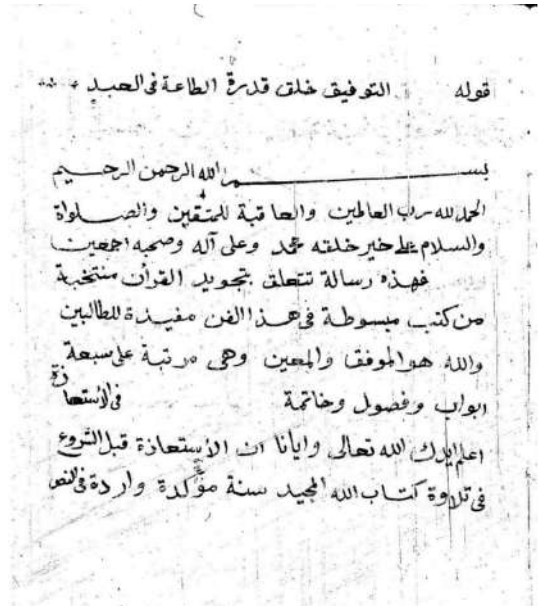 قوله التوفيق خلق قدرة الطاعة فى العبد
بسم الله الرحمن الرحيم
الحمد لله رب العالمين والعاقبة للمتقين والصلواة
والسلام على خير خلقه محمد وعلى آله وصحبه اجمعين
فهذه رسالة تتعلق بتجويد القرآن منتخبة
من كتب مبسوطة فى هذا الفن مفيدة للطالبين
والله هو الموفق والمعين وهى مرتبة على سبعة
ابواب وفصول وخاتمة فى الأستعاذة
اعلم ايدك الله تعالى وايانا ان الأستعاذة قبل الشروع
فى تلاوة كتاب الله المجيد سنة مؤكدة واردة فى النص